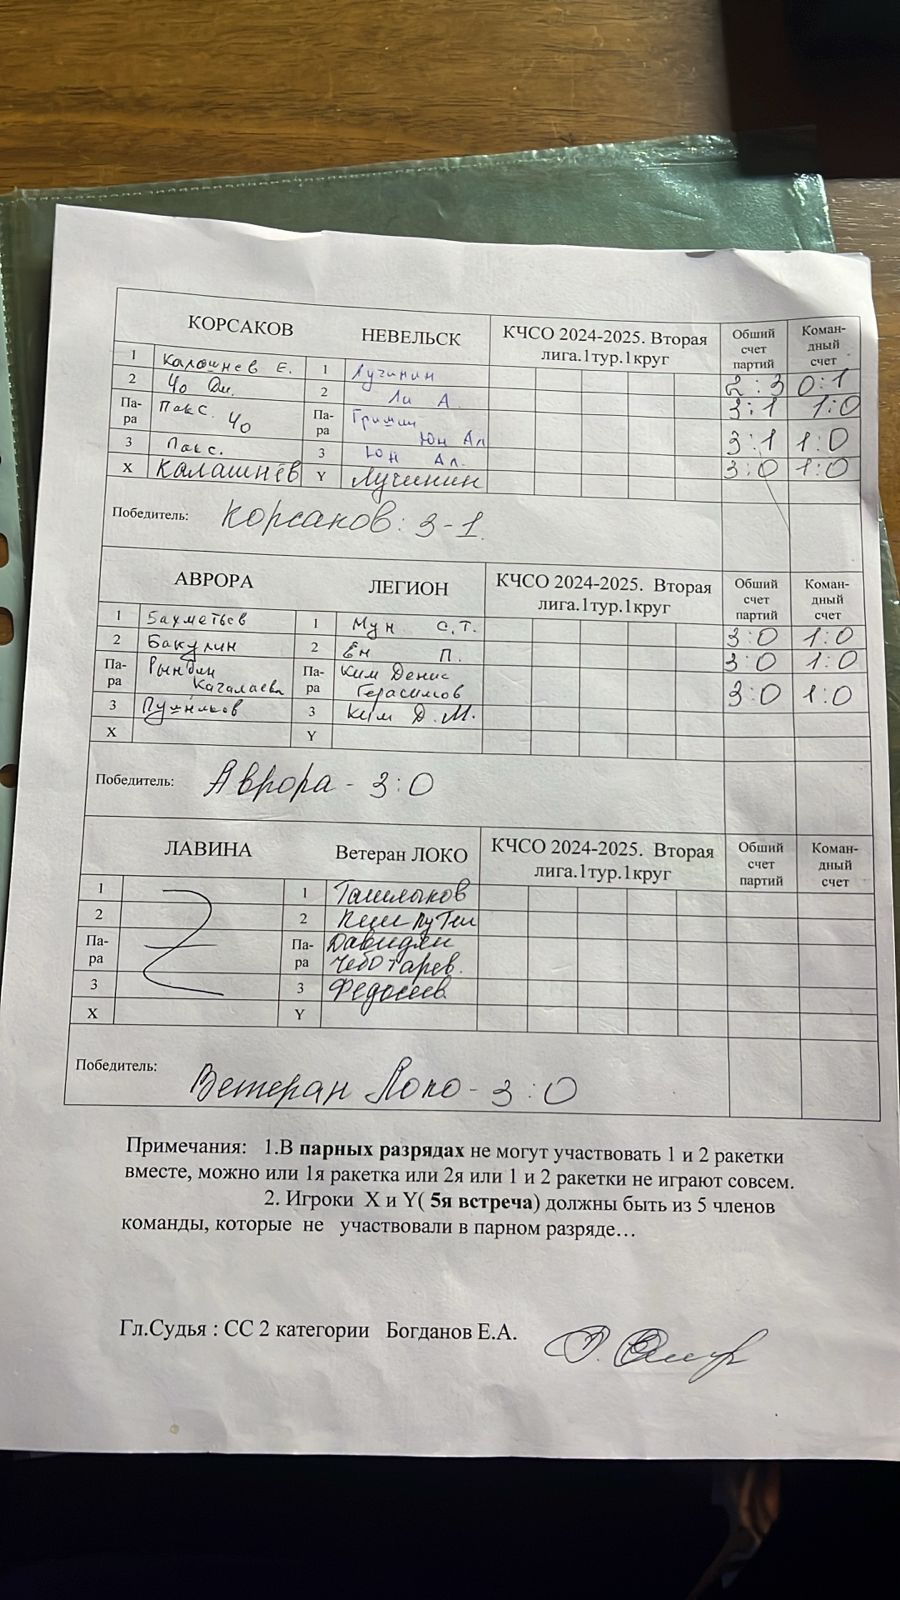 КОРСАКОВ НЕВЕЛЬСК КЧСО 2024-2025. Вторая лига.1тур.1круг Обший счет партий Коман-дный счет
1 Калашнев Е. 1 Лучинин 2:3 0:1
2 Чо Дм. 2 Ли А. 3:1 1:0
Па-ра Пак С. Чо Па-ра Гришин Юн Ал 3:1 1:0
3 Пак с. 3 Юн Ал. 3:0 1:0
X Калашнев Y Лучинин
Победитель: Корсаков: 3-1.
АВРОРА ЛЕГИОН КЧСО 2024-2025. Вторая лига.1тур.1круг Обший счет партий Коман-дный счет
1 Бахметьев 1 Мун С.Т. 3:0 1:0
2 Бакулин 2 Ен П. 3:0 1:0
Па-ра Рындин Качалаева Па-ра Ким Денис Герасимов 3:0 1:0
3 3 Ким Д.М.
X Y
Победитель: Аврора - 3:0
ЛАВИНА Ветеран ЛОКО КЧСО 2024-2025. Вторая лига.1тур.1круг Обший счет партий Коман-дный счет
1 1
2 2
Па-ра Па-ра Давидян Чеботарев.
3 3 Федосеев
X Y
Победитель: Ветеран Локо - 3:0
Примечания: 1.В парных разрядах не могут участвовать 1 и 2 ракетки
вместе, можно или 1я ракетка или 2я или 1 и 2 ракетки не играют совсем.
2. Игроки X и Y( 5я встреча) должны быть из 5 членов
команды, которые не участвовали в парном разряде…
Гл.Судья : СС 2 категории Богданов Е.А.